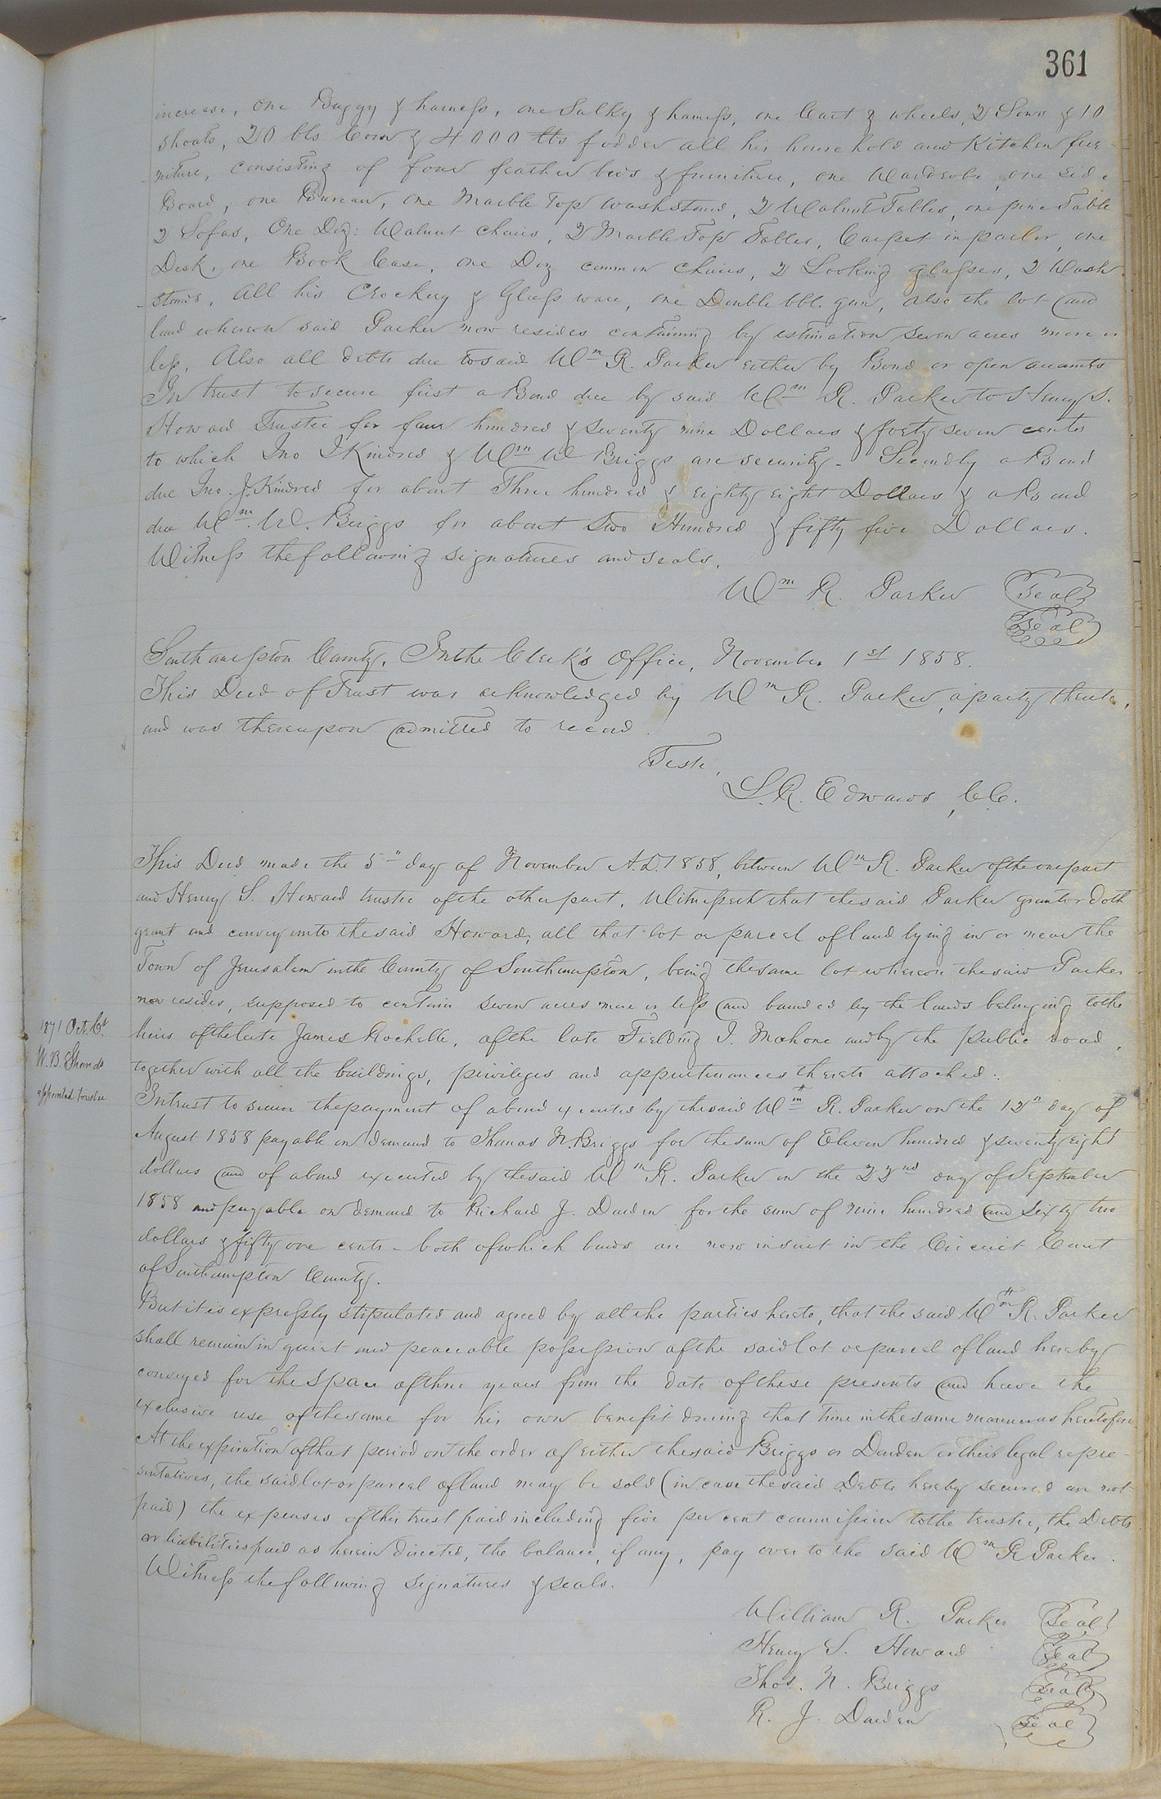 361
increase, One Buggy & harness, one Sulky & harness, one Cart & wheels, 2 Sows & 10
shoats, 20 bls Corn & 4000 lbs fodder all his household and Kitchen fur-
niture, consisting of four feather beds & furniture, one Wardrobe, one Side
Board, one Bureau, one Marble Top Washstand, 2 Walnut Tables, one pine Table
2 Sofas, One Doz: Walnut Chairs, 2 Marble Top Tables, Carpet in parlor, one
Desk, one Book Case, one Doz common Chairs, 2 Looking glasses, 2 Wash
stands, All his Crockery & Glass ware, one Double bbl. gun, also the lot and
land whereon said Parker now resides containing by estimation seven acres more or
less, Also all debts due to said Wm R. Parker either by Bond or open accounts
In trust to secure first a Bond due by said Wm R. Parker to Henry S.
Howard Trustee for four hundred & seventy nine Dollars & forty seven cents
to which Jno J Kindred & Wm W Briggs are security - Secondly a Bond
due Jno. J. Kindred for about Three hundred & eighty eight Dollars & a Bond
due Wm. W. Briggs for about Two Hundred & fifty five Dollars.
Witness the following signatures and seals.
Wm R. Parker Seal
Seal
Southampton County, In the Clerk's Office, November 1st 1858.
This Deed of Trust was acknowledged by Wm R. Parker, a party thereto,
and was thereupon admitted to record.
Teste,
L. R. Edwards, C.C.
This Deed made the 5th day of November A.D. 1858, between Wm R. Parker of the one part
and Henry S. Howard trustee of the other part, Witnesseth that the said Parker grantor doth
grant and convey unto the said Howard, all that lot or parcel of land lying in or near the
Town of Jerusalem in the County of Southampton, being the same lot whereon the said Parker
now resides, supposed to contain seven acres more or less and bounded by the lands belonging to the
heirs of the late James Rochelle, of the late Fielding J. Mahone and by the public road,
together with all the buildings, privileges and appurtenances thereto attached.
1871 Oct. Ct
W. B. Shands
appointed trustee
In trust to secure the payment of a bond executed by the said Wm R. Parker on the 12th day of
August 1858 payable on demand to Thomas N. Briggs for the sum of Eleven hundred & seventy eight
dollars and of a bond executed by the said Wm R. Parker on the 22nd day of September
1858 and payable on demand to Richard J. Darden for the sum of nine hundred and sixty two
dollars & fifty one cents - both of which bonds are now in suit in the Circuit Court
of Southampton County.
But it is expressly stipulated and agreed by all the parties hereto, that the said Wm R. Parker
shall remain in quiet and peaceable possession of the said lot or parcel of land hereby
conveyed for the space of three years from the date of these presents and have the
exclusive use of the same for his own benefit during that time in the same manner as heretofore
At the expiration of that period on the order of either the said Briggs or Darden or their legal repre-
sentatives, the said lot or parcel of land may be sold (in case the said Debts hereby secured are not
paid) the expenses of this trust paid including five per cent commission to the trustee, the Debts
or liabilities paid as herein directed, the balance, if any, pay over to the said Wm R Parker.
Witness the following signatures & seals.
William R. Parker Seal
Henry S. Howard Seal
Thos. N. Briggs Seal
R. J. Darden Seal